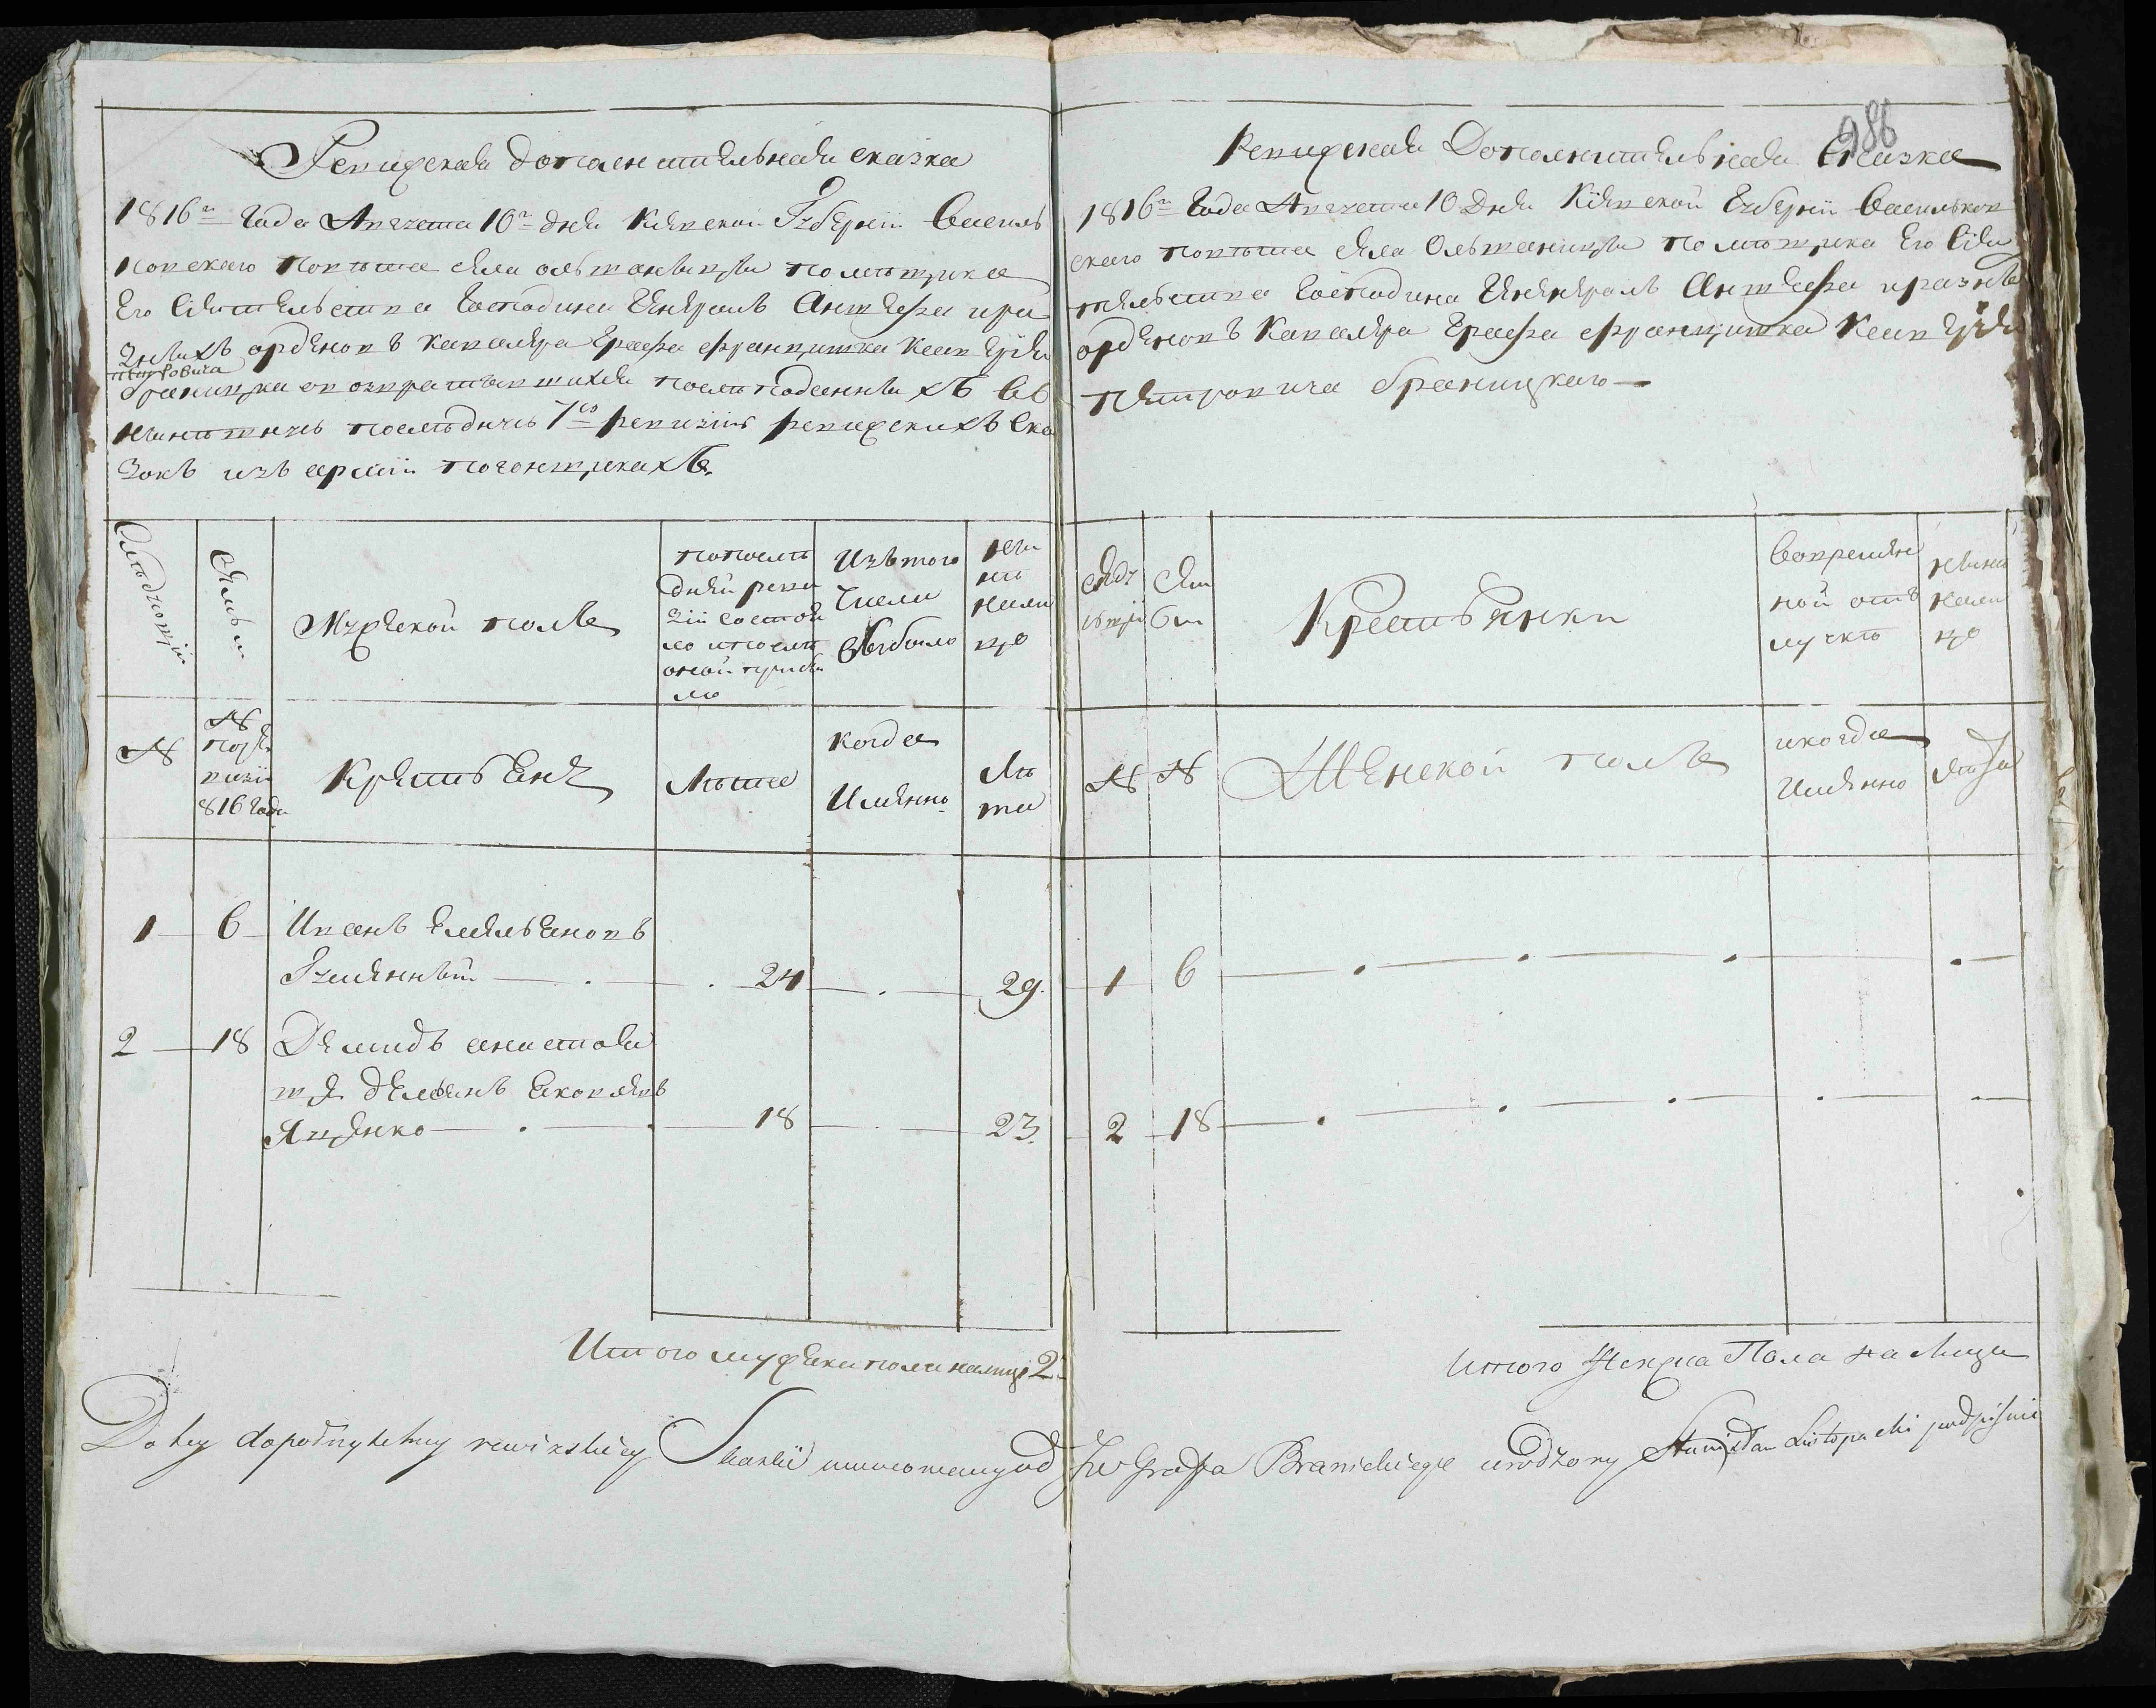 Ревижская дополнительная сказка
1816го Года Августа 10го дня Киевской Губернiи Василь
ковского повета села ольшаницы помещика
Его Сiятельства Господина Генералъ Аншефа и ра
зныхъ орденовъ кавалера Графа францишка Ксаверiя
петровича
браницкаго о возвратившихся после поданныхъ въ
нынешнюю последнюю 7ю ревизiю ревижскихъ Ска
зокъ изъ армiи погонщикахъ.
Следующiи
Семьи
Мужеской полъ
попосле
дней реви
зiи состоя
ло и после
оной прибы
ло
Изъ того
Числа
выбыло
ны
не
нали
цо
№
№
по ре
визiи
816 Года
Крестьяне
Лета
когда
Имянно
Ле
та
1 6 Иванъ Емельяновъ
Гуменный 24 29.
2 18 Демидъ
Яценко 18 23.
Итого мужеска пола налицо 2.
986
Ревижская Дополнительная Сказка
1816го Года Августа 10 Дня Кiевской Губернiи Васильков
ского повета села Ольшаницы помещика Его Сiя
тельства Господина Генералъ Аншефа и разныхъ
орденовъ Кавалера Графа францишка Ксаверiя
Петровича браницкаго
Семьи
Крестьянки
Вовремен
ной от
лучке
ныне
нали
цо
№
№
Женской полъ
и когда
Имянно
Лета
1 6
2 18
Итого Женска Пола на Лицо
Do tey dopołnytelney rewizskiey Skazki umocowany od JW Grafa Branickiego urodzony Stanisław podpisuie